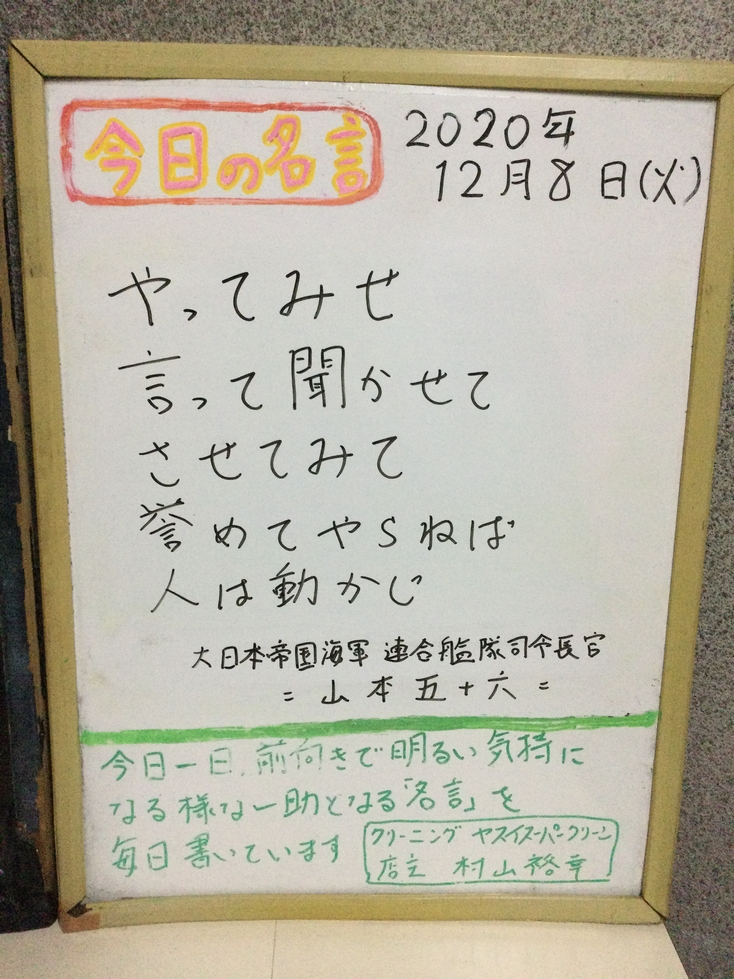 今日の名言
2020年
12月8日(火)
やってみせ
言って聞かせて
させてみて
誉めてやらねば
人は動かじ
大日本帝国海軍 連合艦隊司令長官
= 山本五十六 =
今日一日、前向きで明るい気持に
なる様な一助となる「名言」を
毎日書いています
クリーニング ヤスイスーパークリーン
店主 村山裕幸